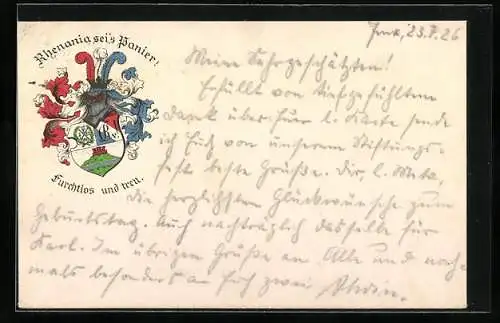 Rhenania sei's Panier!
Furchtlos und treu.
Jena, 23.V.26
Meine Sehrgeschätzten!
Erfüllt von tiefgefühltem
Dank über Eure l. Karte sende
ich Euch von unserem Stiftungs-
fest beste Grüße. Dir, l. Meta,
die herzlichsten Glückwünsche zum
Geburtstag. Auch nachträglich dasselbe für
Karl. Im übrigen Grüße an Alle und noch-
mals besonders an Euch zwei